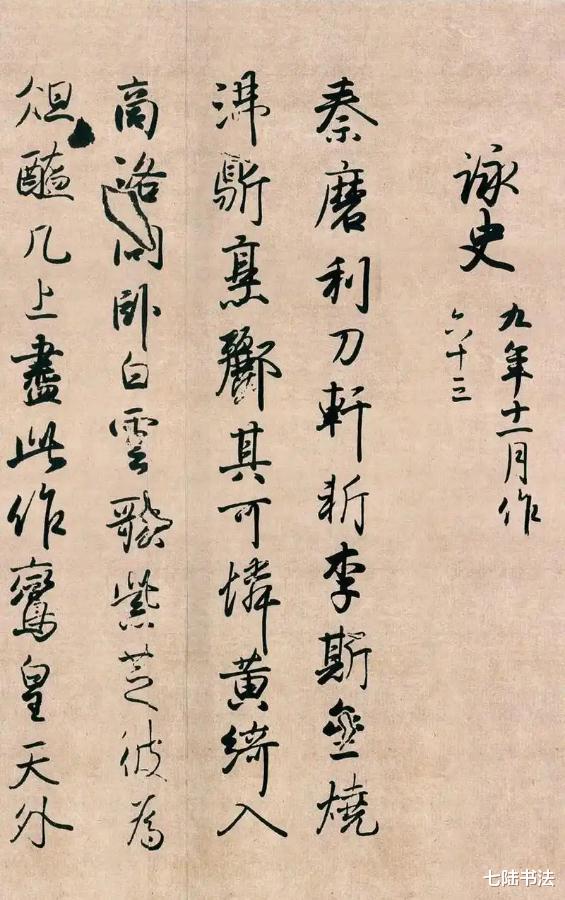 詠史
九年十一月作
六十三
秦磨利刀軒斬李斯亝燒
沸鼎烹酈其可憐黃綺入
商洛間臥白雲歌紫芝彼為
俎醢几上盡此作鸞皇天外
七陆书法